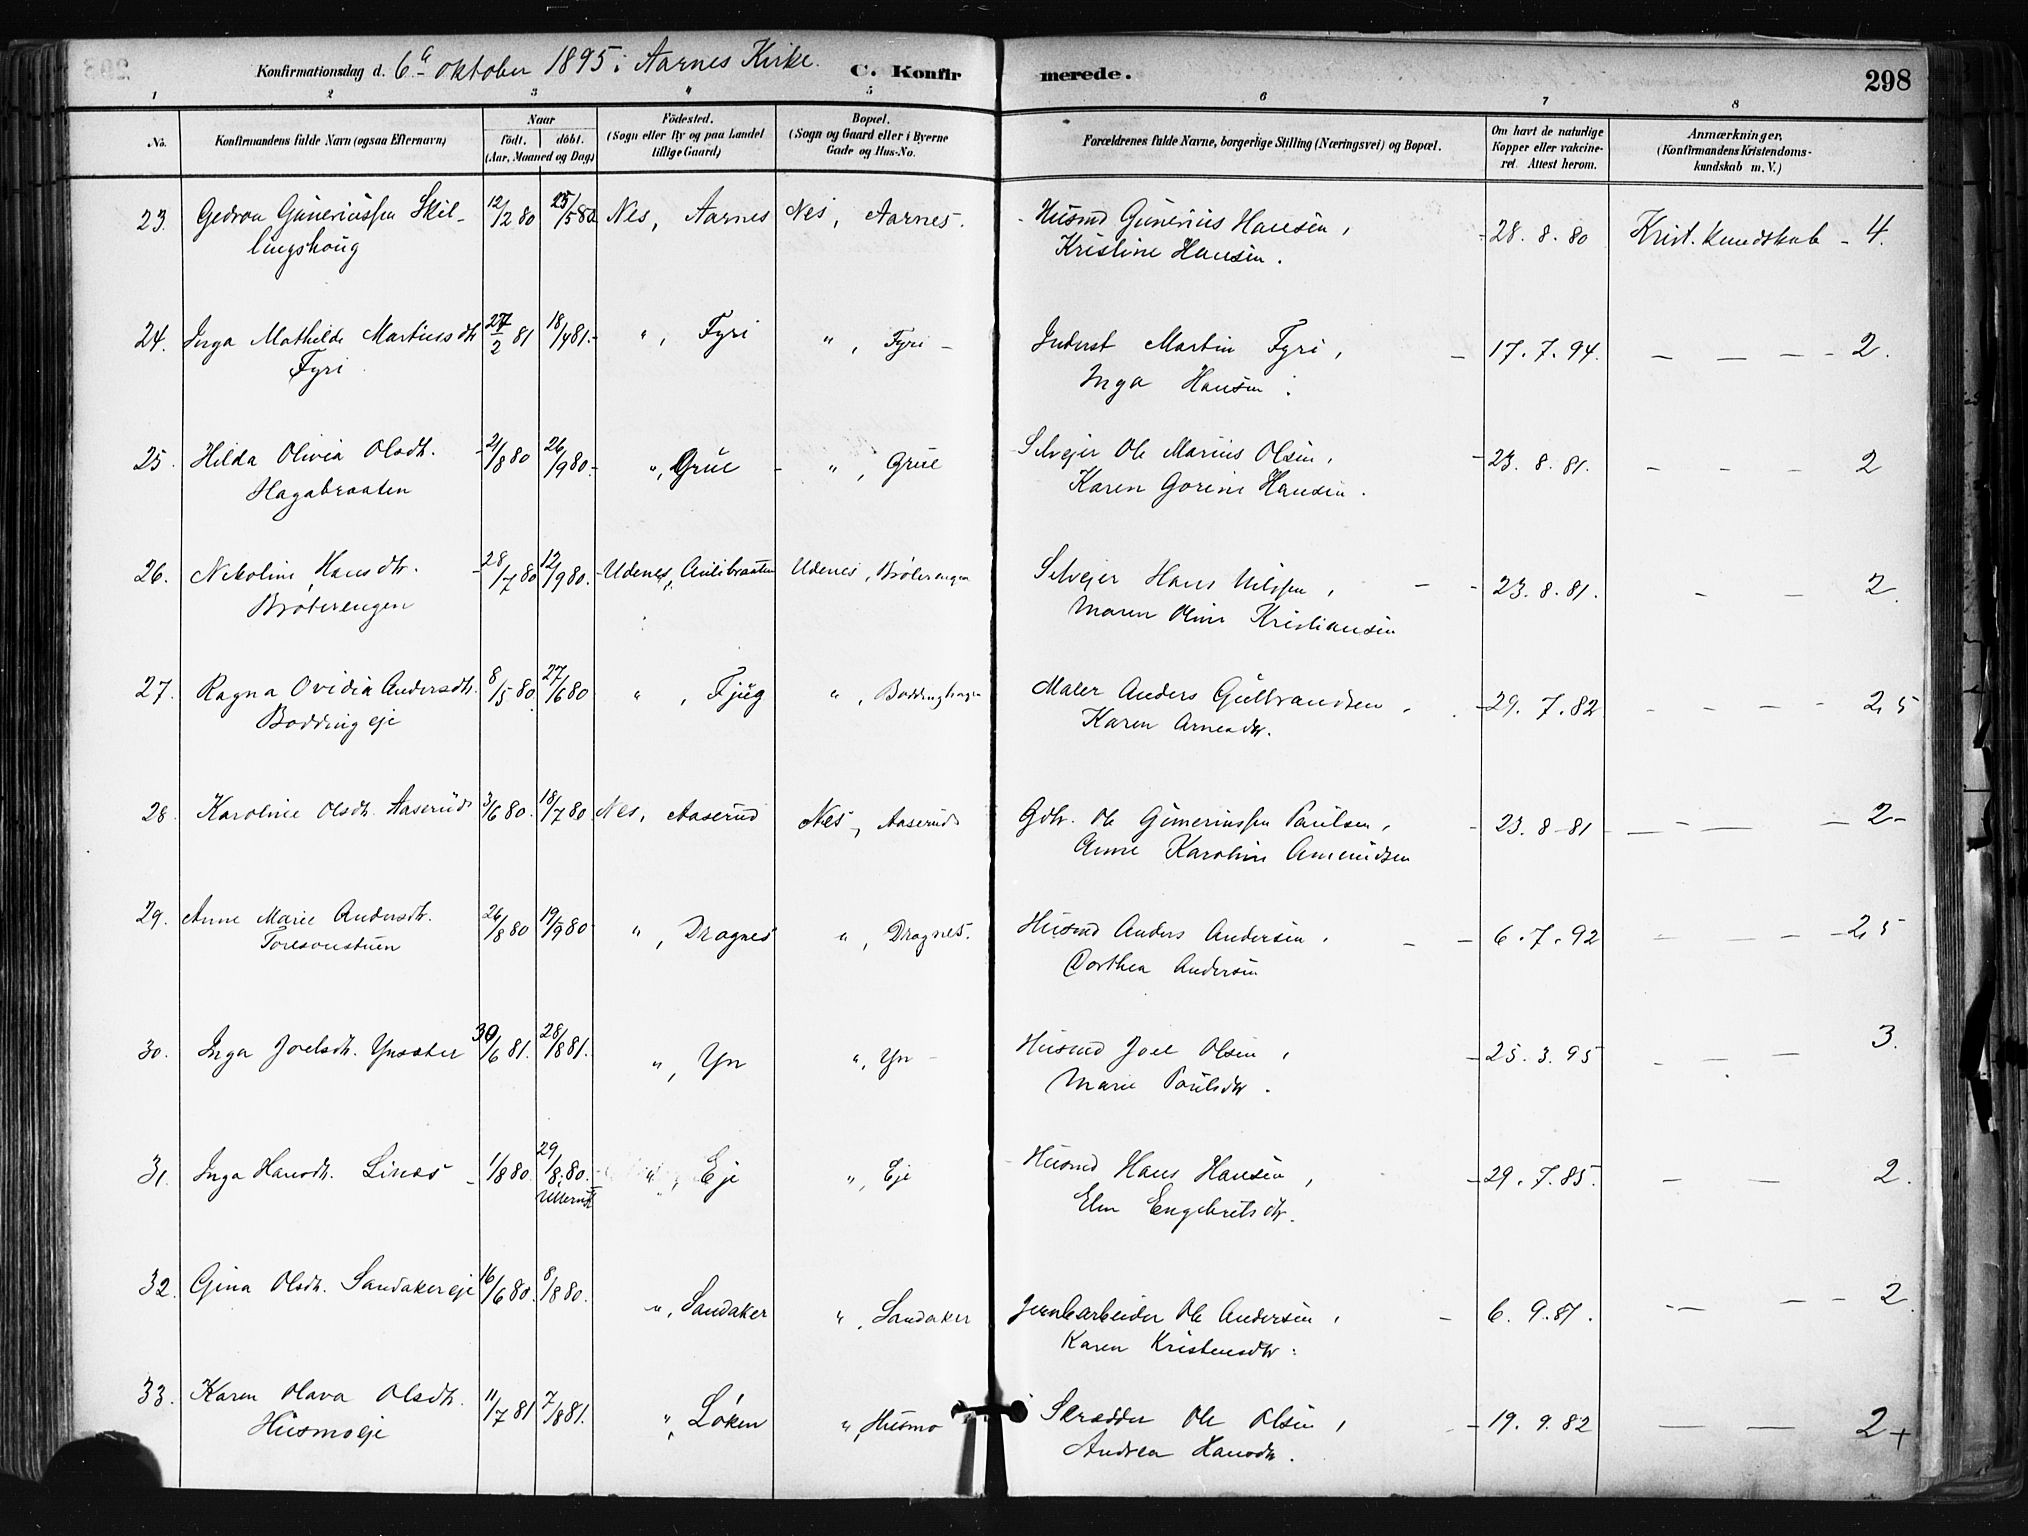 Konfirmationsdag d. 6te oktober 1895 i Aarnes Kirke. C. Konfirmerede. 298
1 2 3 4 5 6 7 8
No. Konfirmandens fulde Navn (ogsaa Efternavn) Naar födt. döbt. (Aar, Maaned og Dag) Födested. (Sogn eller By og paa Landet tillige Gaard) Bopæl. (Sogn og Gaard eller i Byerne Gade og Hus-No. Forældrenes fulde Navne, borgerlige Stilling (Næringsvei) og Bopæl. Om havt de naturlige Kopper eller vakcineret. Attest herom. Anmærkninger. (Konfirmandens Kristendomskundskab m. V.)
23. Gunerius​sen Skil- 12/2 80 25/5 80 Nes, Aarnes Nes, Aarnes. Husmd Gunerius Hansen, 28. 8. 80 Krist. kundskab - 4.
lingshoug Kristine Hansen.
24. Inga Mathilde Martinsdtr 27/2 81 18/4 81. " , Fyri " , Fyri Inderst Martin Fyri, 17. 7. 94. — — — 2.
Fyri Inga Hansen.
25. Hilda Olivia Olsdtr. 21/8 80 26/9 80 " , Grue " , Grue Selvejer Ole Marius Olsen, 23. 8. 81. — — — 2
Hagabraaten Karen Gorine Hansen.
26. Nikoline Hansdtr. 28/7 80 12/9 80. Udenes, Udenes, Bröterengen Selvejer Hans Nilssen, 23. 8. 81. — — 2
Bröterengen Maren Oline Kristiansen
27. Ragna Ovidia Andersdtr. 8/5 80 27/6 80 " , Fjug " , Maler Anders Gulbrandsen, 29. 7. 82 — — — — 2,5
Boddingeje Karen Arnesdtr.
28. Karoline Olsdtr. Aaserud 3/6 80. 18/7 80 Nes, Aaserud Nes, Aaserud Gdbr. Ole Gunerius​sen Paulsen, 23. 8 - 81 — — — 2 -
Anne Karoline Amundsen
29. Anne Marie Andersdtr. 26/8 80 19/9 80 " , Dragnes " , Dragnes. Husmd Anders Andersen, 6. 7. 92 — — — 2,5
Toresonstuen Dorthea Andersen
30. Inga Joelsdtr. Ynsæter 30/6 81. 28/8 81. " , Yn " , Yn Husmd Joel Olsen, 25. 3. 95 — — — 3.
Marie Paulsdtr.
31. Inga Hansdtr. Linæs 1/8 80 29/8. 80. " , Eje " , Eje Husmd Hans Hansen, 29. 7. 85. — — 2.
Ullerud Elen Engebretsdtr.
32. Gina Olsdtr. Sandakereje 16/6 80. 8/8 80. " , Sandaker " , Sandaker Jernbarbeider Ole Andersen, 6. 9. 81. — — — 2.
Karen Kristensdtr.
33. Karen Olava Olsdtr. 11/7 81 7/8 81. " , Löken " , Husmo Skrædder Ole Olsen, 19. 9. 82 — — 2 +
Husmoeje Andrea Hansdtr.